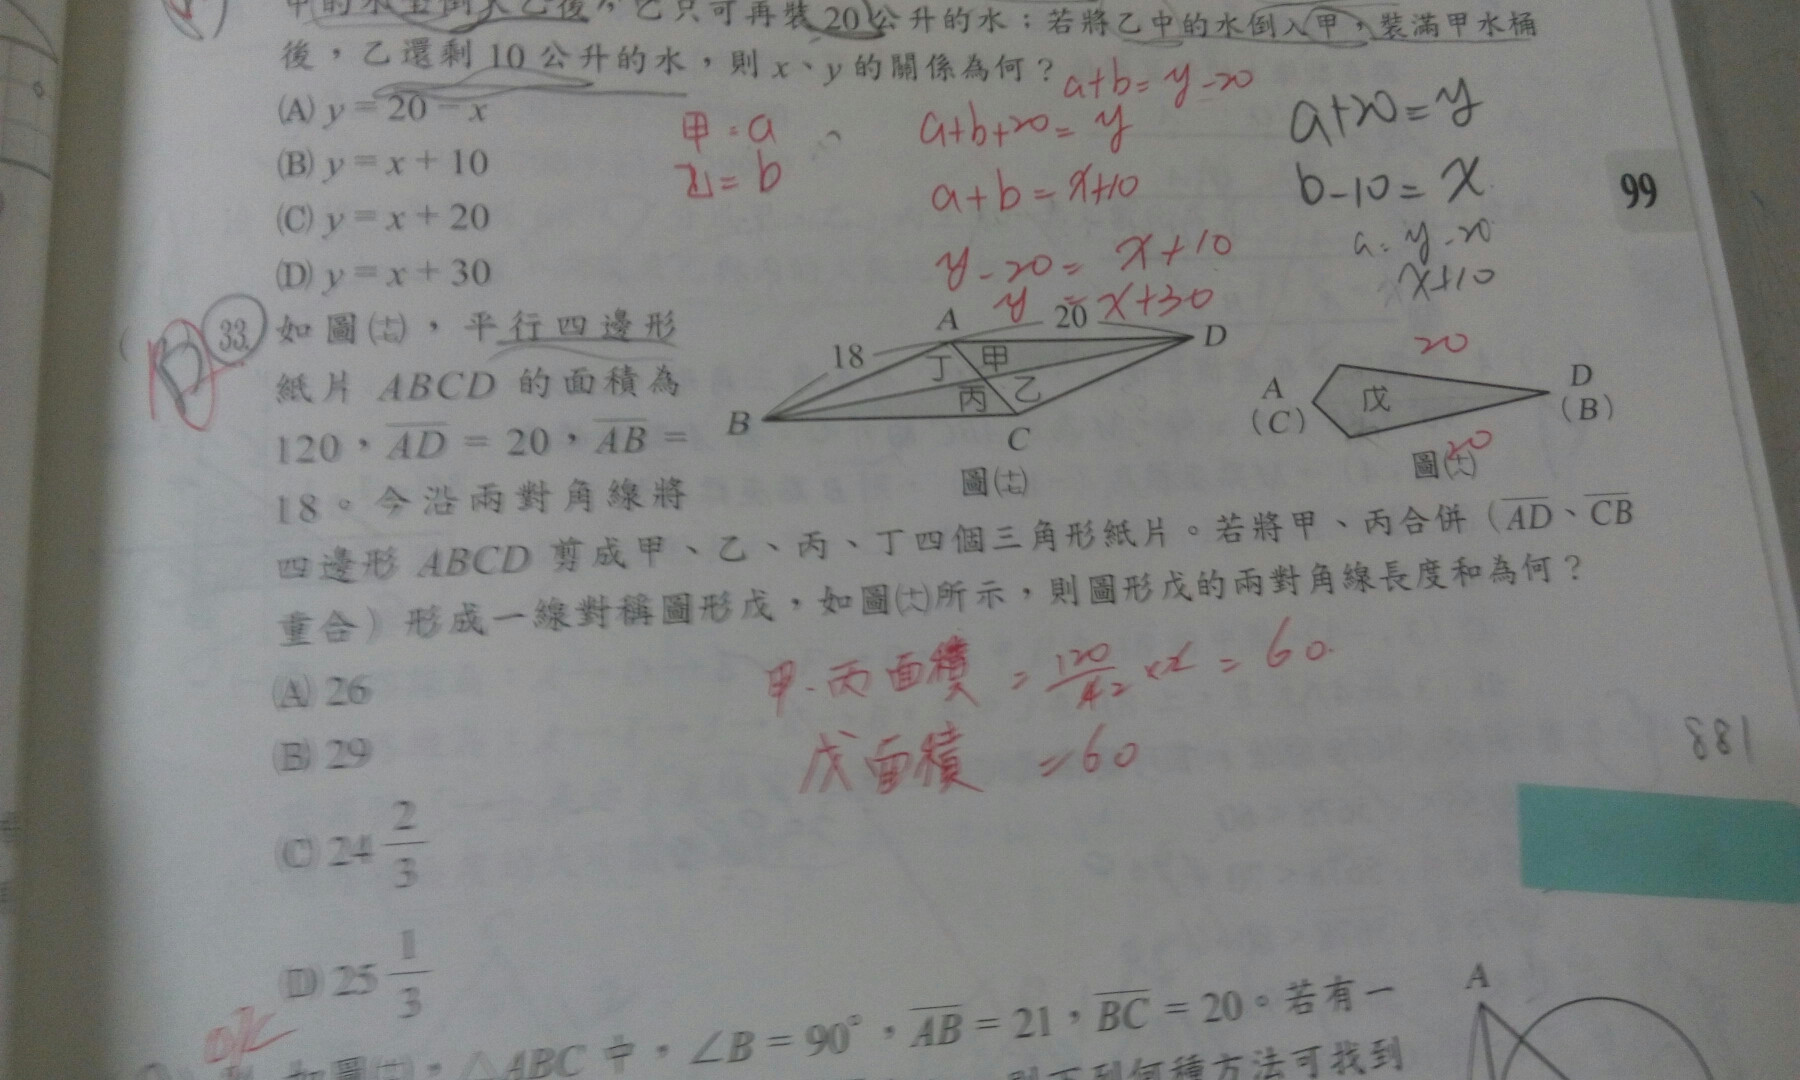 中的水全倒入乙後，乙只可再裝 20 公升的水；若將乙中的水倒入甲，裝滿甲水桶
後，乙還剩 10 公升的水，則 x、y 的關係為何？
a+b=y-20
(A) y＝20－x
甲=a
a+b+20=y
a+20=y
(B) y＝x＋10
乙=b
a+b=x+10
b-10=x
99
(C) y＝x＋20
y-20=x+10
a=y-20
x+10
(D) y＝x＋30
y=x+30
33. 如圖(十七)，平行四邊形
紙片 ABCD 的面積為
120，AD＝20，AB＝
18。今沿兩對角線將
四邊形 ABCD 剪成甲、乙、丙、丁四個三角形紙片。若將甲、丙合併（AD、CB
重合）形成一線對稱圖形戊，如圖(十八)所示，則圖形戊的兩對角線長度和為何？
A
20
D
18
丁
甲
丙
乙
B
C
圖(十七)
20
A
(C)
戊
D
(B)
20
圖(十八)
(A) 26
甲、丙面積 = 120/42 ×2 = 60
(B) 29
戊面積 = 60
188
(C) 24 2/3
(D) 25 1/3
A
如圖，△ABC 中，∠B＝90°，AB＝21，BC＝20。若有一
則下列何種方法可找到